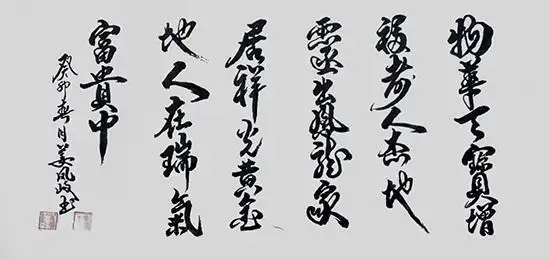 物華天寶增
福壽人杰地
靈出鳳龍家
居祥光黃金
地人在瑞氣
富貴中
癸卯春月姜风岐书